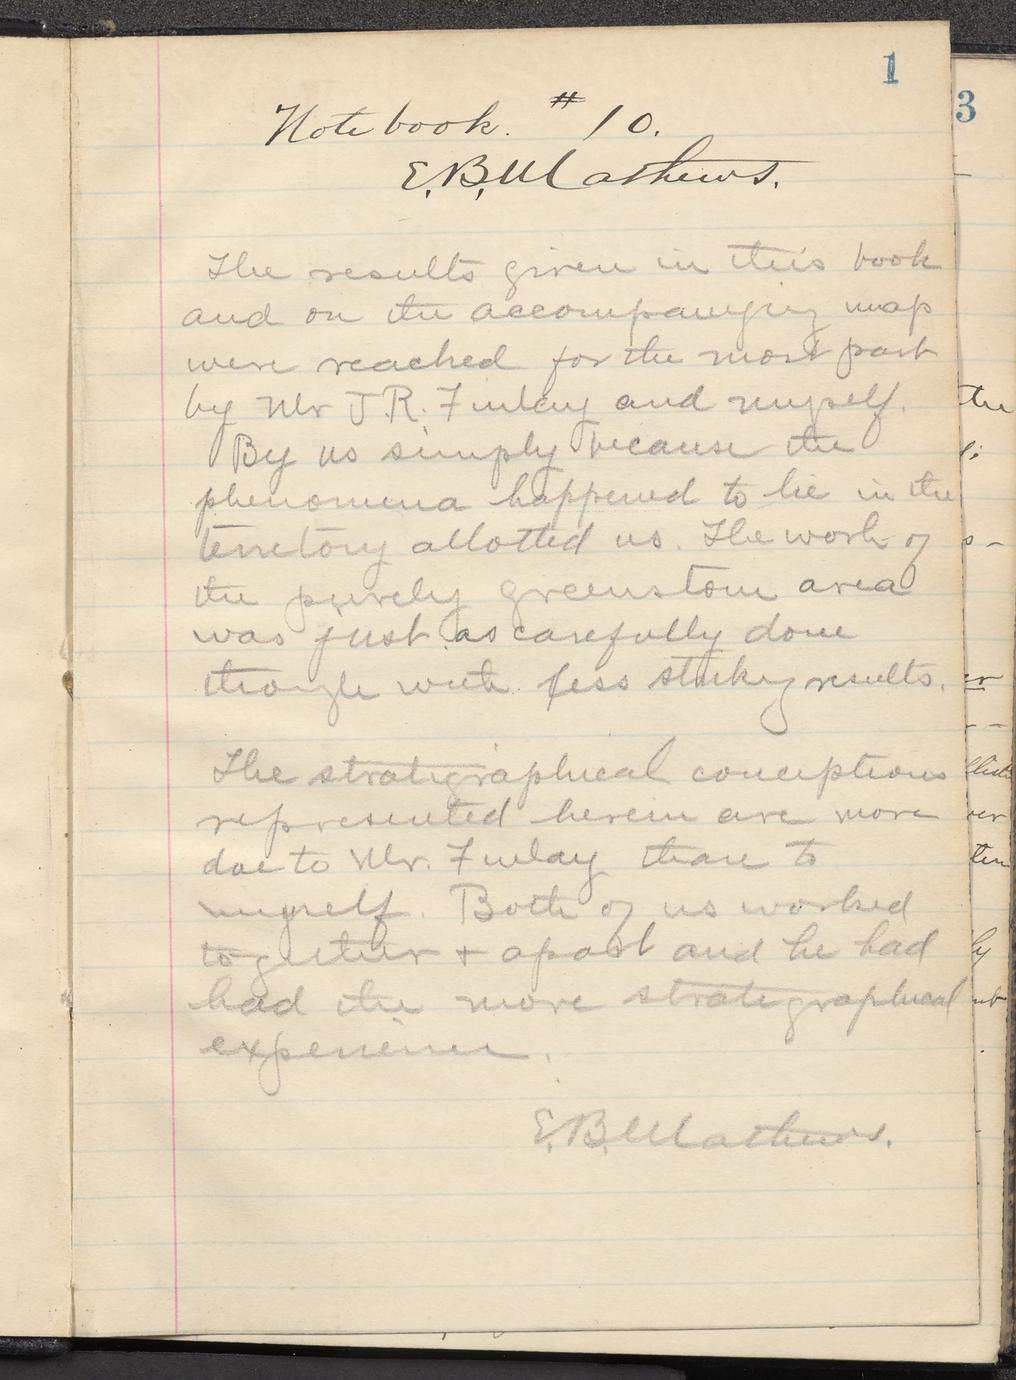 1
3
Notebook. # 10.
E.B. Mathews.
The results given in this book
and on the accompanying map
were reached for the most part
by Mr J.R. Finlay and myself.
By us simply because the
phenomena happened to lie in the
territory allotted us. The work of
the purely greenstone area
was just as carefully done
though with less striking results.
The stratigraphical conceptions
represented herein are more
due to Mr. Finlay than to
myself. Both of us worked
together + apart and he had
had the more stratigraphical
experience.
E.B. Mathews.